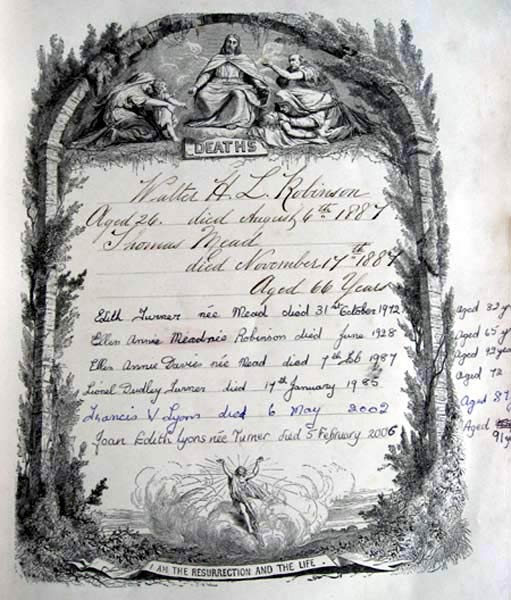 DEATHS
Walter H. L. Robinson
Aged 26. died August 6th 1887
Thomas Mead
died November 17th 1887
Aged 66 Years
Edith Turner née Mead died 31st October 1972 Aged 82 y
Ellen Annie Mead née Robinson died June 1928 Aged 65 y
Ellen Annie Davies née Mead died 7th Feb 1987 Aged 92 yea
Lionel Dudley Turner died 17th January 1985 Aged 72
Francis V Lyons died 6 May 2002 Aged 87
Joan Edith Lyons née Turner died 5 February 2006 Aged
91y
I AM THE RESURRECTION AND THE LIFE.